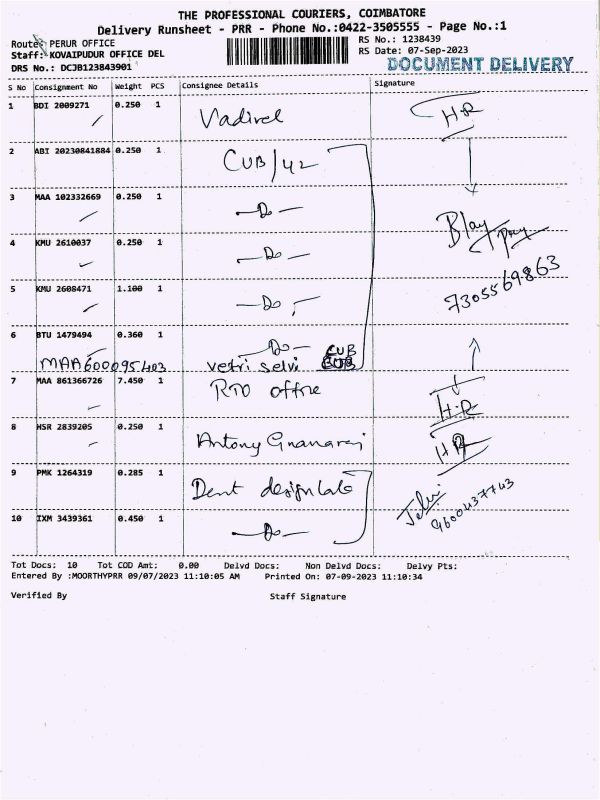 THE PROFESSIONAL COURIERS, COIMBATORE
Delivery Runsheet - PRR - Phone No.:0422-3505555 - Page No.:1
Route: PERUR OFFICE RS No.: 1238439
Staff: KOVAIPUDUR OFFICE DEL RS Date: 07-Sep-2023
DRS No.: DCJB123843901 DOCUMENT DELIVERY
S No Consignment No Weight PCS Consignee Details Signature
1 BDI 2009271 0.250 1 Vadivel H.R
2 ABI 20230841884 0.250 1 CUB/42
3 MAA 102332669 0.250 1 —Do—
4 KMU 2610037 0.250 1 —Do—
5 KMU 2608471 1.100 1 —Do—
7305569863
6 BTU 1479494 0.360 1 —Do— CUB
MAA600095403 vetri selvi CUB
7 MAA 861366726 7.450 1 RTO office H.R
8 HSR 2839205 0.250 1 Antony Gnanaraj HR
9 PMK 1264319 0.285 1 Dent design lab
9600437743
10 IXM 3439361 0.450 1 —Do—
Tot Docs: 10 Tot COD Amt: 0.00 Delvd Docs: Non Delvd Docs: Delvy Pts:
Entered By :MOORTHYPRR 09/07/2023 11:10:05 AM Printed On: 07-09-2023 11:10:34
Verified By Staff Signature